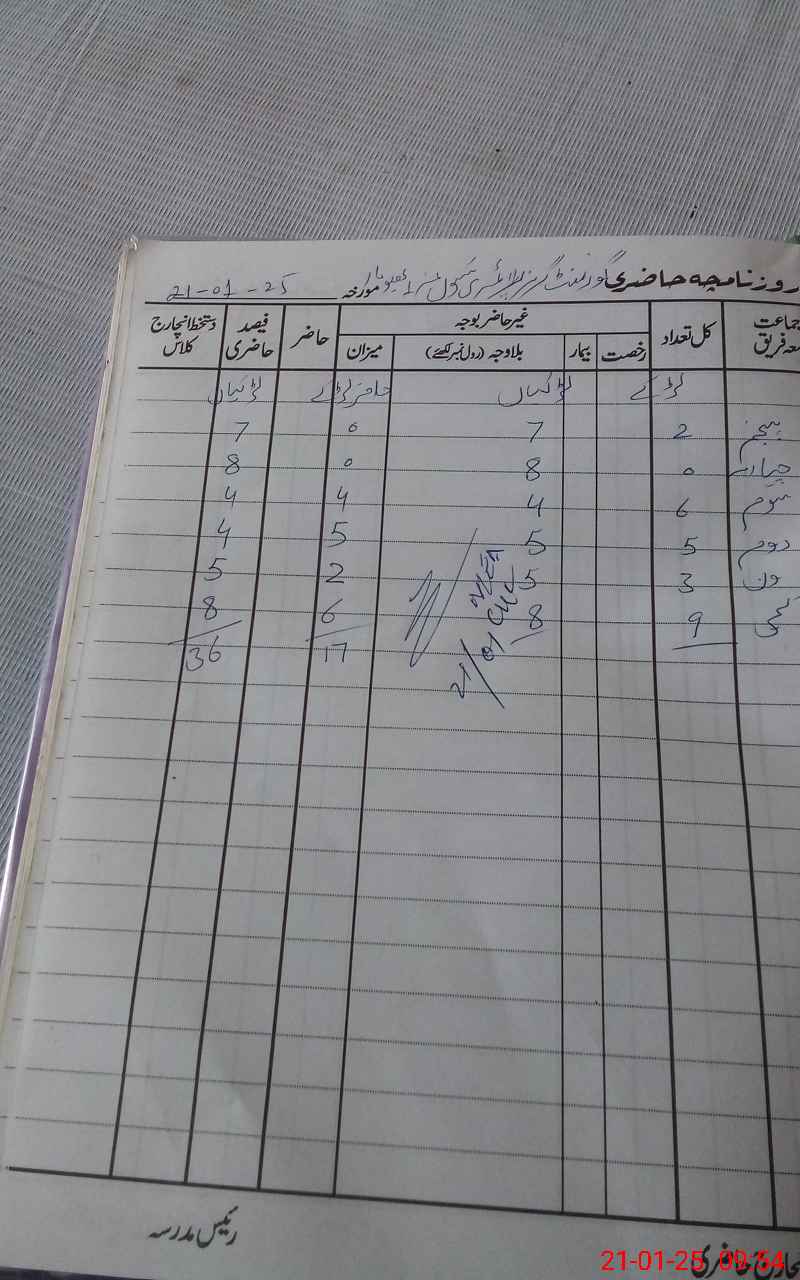 روزنامچہ حاضری گورنمنٹ گرلز پرائمری سکول نمبر 1 مورخہ 21-01-25
جماعت معہ فریق کل تعداد غیر حاضر بوجہ حاضر فیصد حاضری دستخط انچارج کلاس
رخصت بیمار بلاوجہ (رول نمبر لکھئے) میزان
لڑکے لڑکیاں حاضر لڑکے لڑکیاں
پنجم 2 7 0 7
چہارم 0 8 0 8
سوم 6 4 4 4
دوم 5 5 5 4
ون 3 5 2 5
کچی 9 8 6 8
17 36
21/01
رئیس مدرسہ
21-01-25 09:54